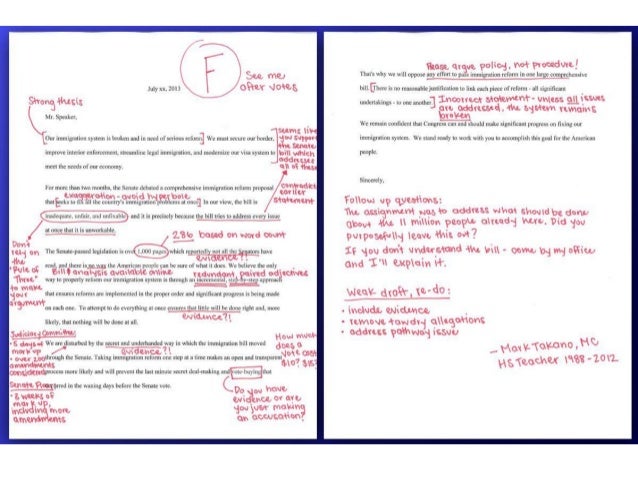 F
See me
after votes
July xx, 2013
Strong thesis
Mr. Speaker,
Our immigration system is broken and in need of serious reform. We must secure our border,
seems like
you support
the Senate
bill which
addresses
all of these
improve interior enforcement, streamline legal immigration, and modernize our visa system to
meet the needs of our economy.
For more than two months, the Senate debated a comprehensive immigration reform proposal
contradicts
earlier
statement
exaggeration - avoid hyperbole
that seeks to fix all the country's immigration problems at once. In our view, the bill is
inadequate, unfair, and unfixable and it is precisely because the bill tries to address every issue
at once that it is unworkable.
286 based on word count
Don't
rely on
the
"Rule of
Three"
to make
your
argument
The Senate-passed legislation is over 1,000 pages which reportedly not all the Senators have
evidence?!
read, and there is no way the American people can be sure of what it does. We believe the only
Bill & analysis available online
redundant, paired adjectives
way to properly reform our immigration system is through an incremental, step-by-step approach
that ensures reforms are implemented in the proper order and significant progress is being made
on each one. To attempt to do everything at once ensures that little will be done right and, more
evidence?!
likely, that nothing will be done at all.
Judiciary Committee:
- 5 days of
mark up
- over 200
amendments
considered
We are disturbed by the secret and underhanded way in which the immigration bill moved
evidence?!
through the Senate. Taking immigration reform one step at a time makes an open and transparent
process more likely and will prevent the last minute secret deal-making and vote-buying that
How much
does a
vote cost
$10? $15?
Senate Floor:
- 3 weeks of
mark up,
including more
amendments
occurred in the waning days before the Senate vote.
Do you have
evidence or are
you just making
an accusation?
Please argue policy, not procedure!
That's why we will oppose any effort to pass immigration reform in one large comprehensive
bill. There is no reasonable justification to link each piece of reform - all significant
undertakings - to one another.
Incorrect statement - unless all issues
are addressed, the system remains
broken
We remain confident that Congress can and should make significant progress on fixing our
immigration system. We stand ready to work with you to accomplish this goal for the American
people.
Sincerely,
Follow up questions:
The assignment was to address what should be done
about the 11 million people already here. Did you
purposefully leave this out?
If you don't understand the bill - come by my office
and I'll explain it.
Weak draft, re-do:
• include evidence
• remove tawdry allegations
• address pathway issue
- Mark Takano, MC
HS Teacher 1988-2012